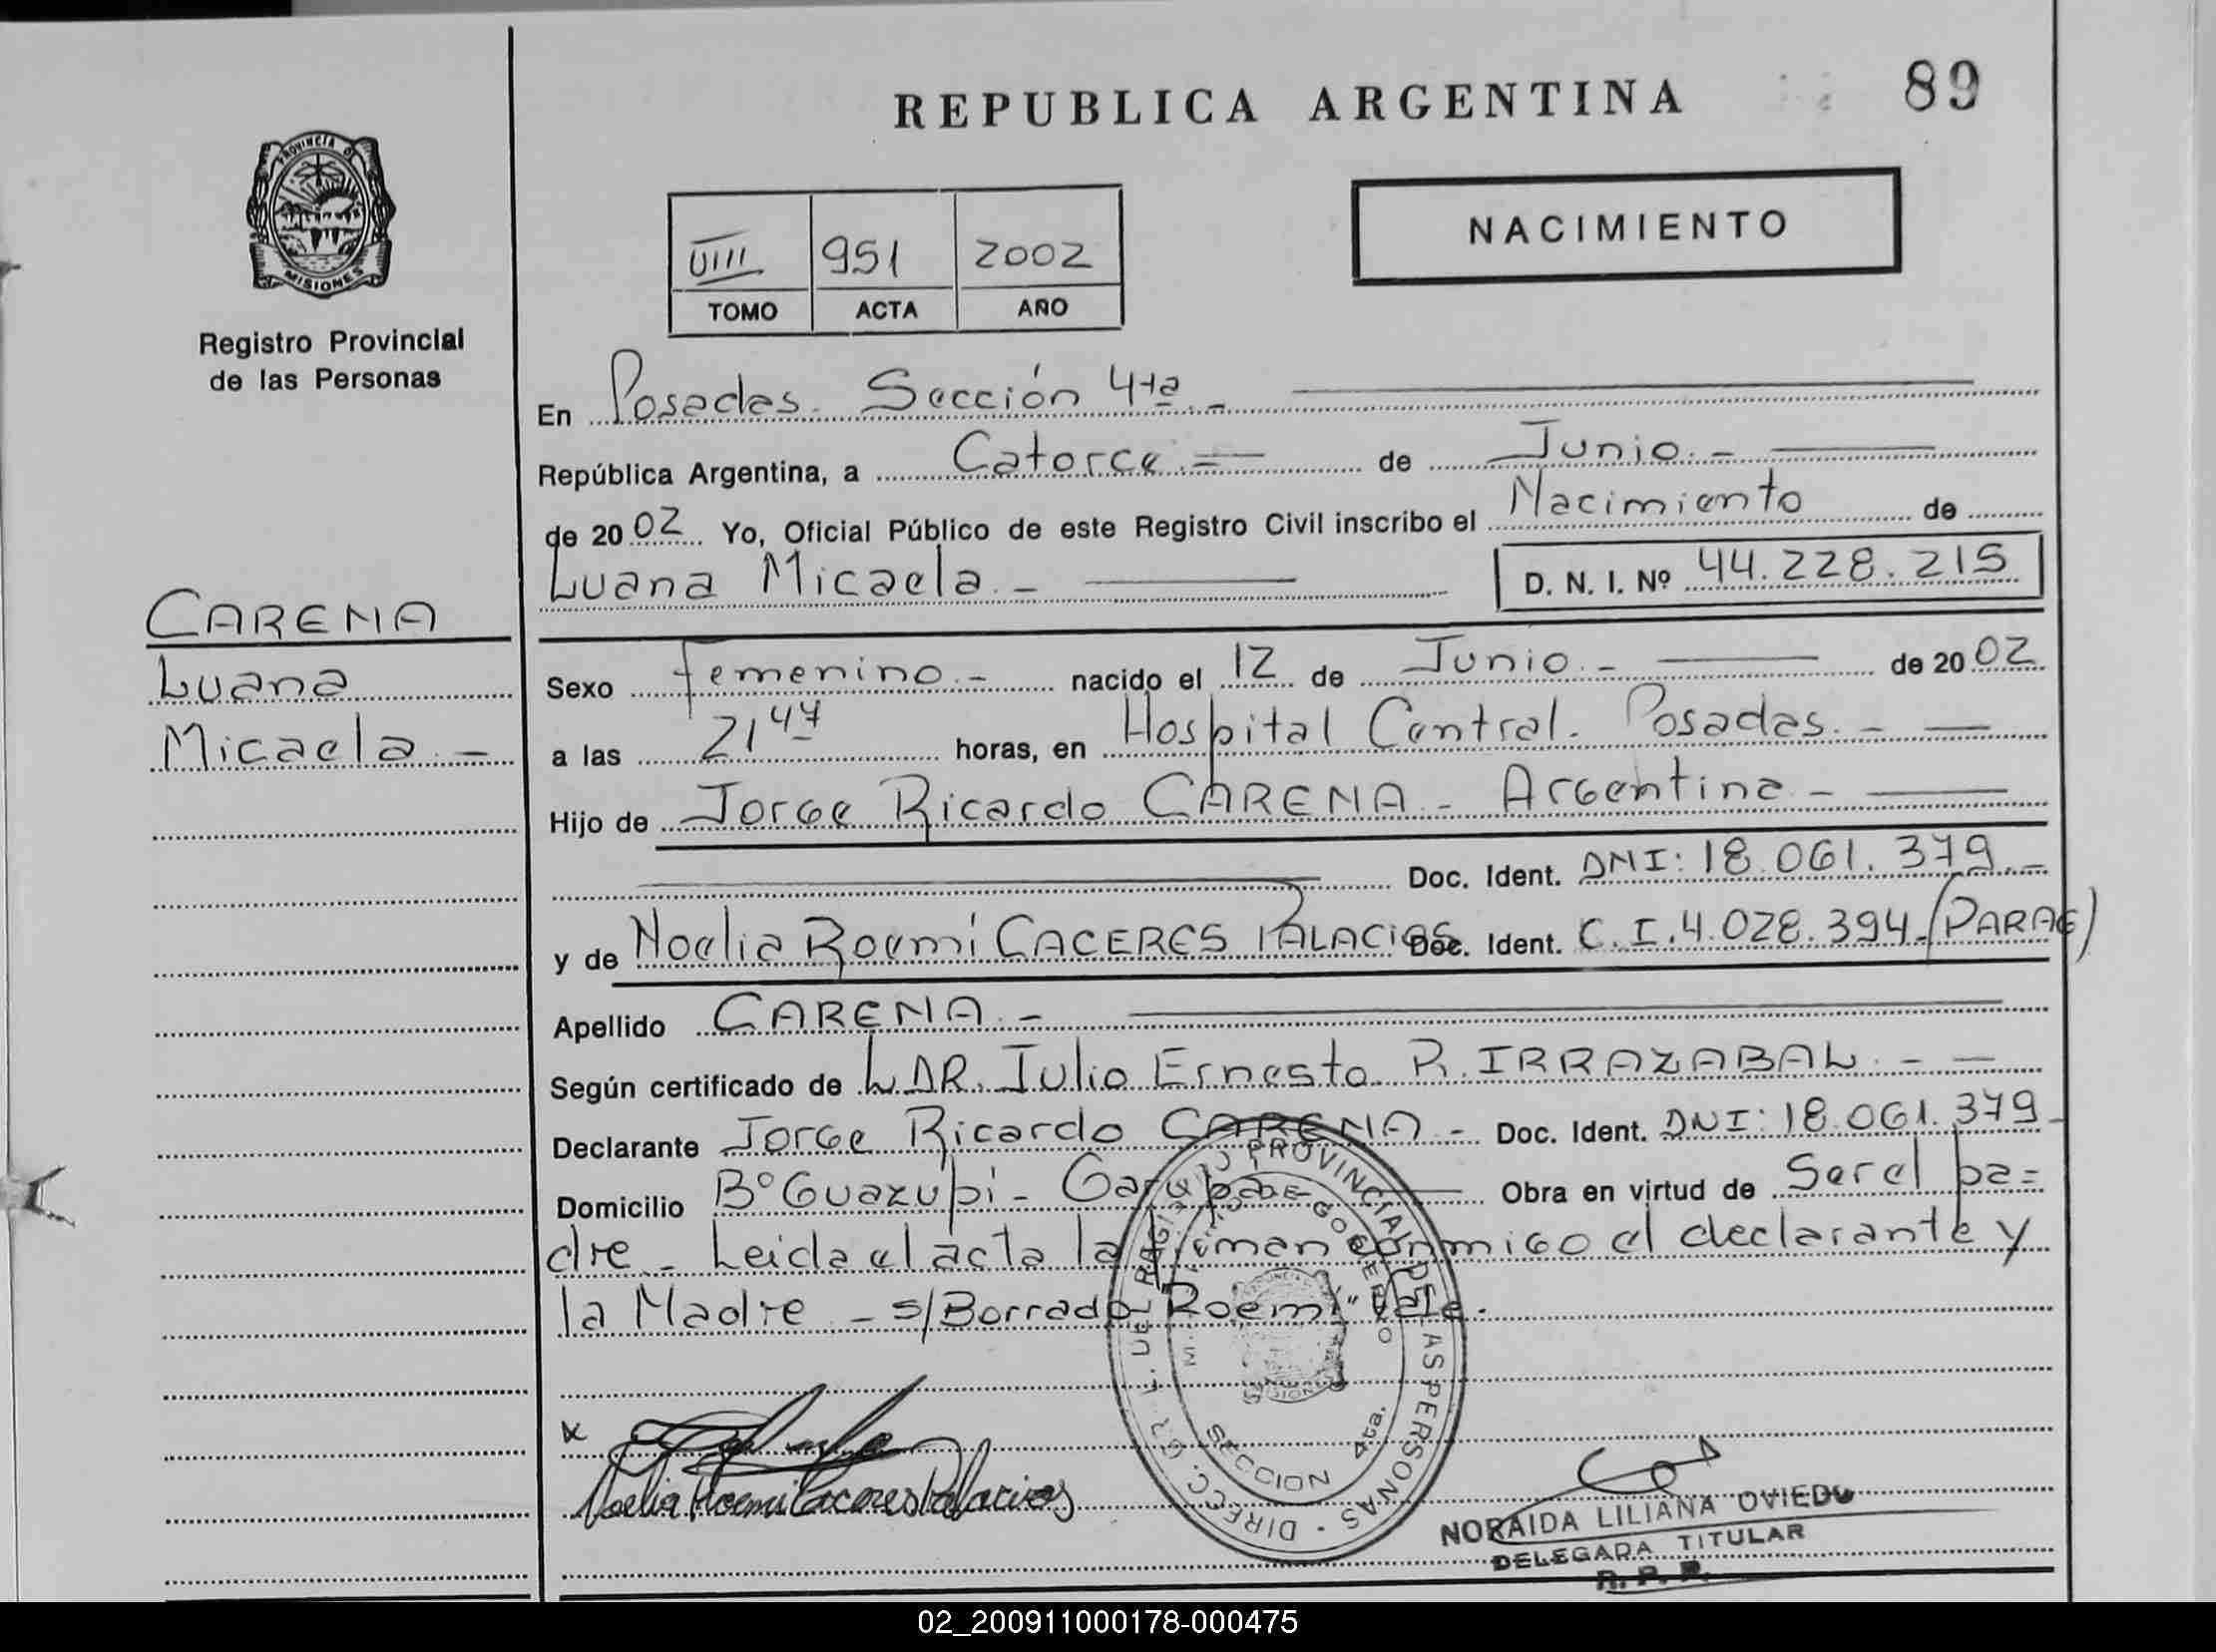 REPUBLICA ARGENTINA
89
PROVINCIA DE
MISIONES
Registro Provincial
de las Personas
NACIMIENTO
VIII 951 2002
TOMO ACTA AÑO
En Posadas. Sección 4ta. -
República Argentina, a Catorce.= de Junio. -
de 2002 Yo, Oficial Público de este Registro Civil inscribo el Nacimiento de
Luana Micaela. - D. N. I. Nº 44.228.215
CARENA
Luana
Micaela. -
Sexo femenino. - nacido el 12 de Junio. - de 2002
a las 21 47 horas, en Hospital Central. Posadas. -
Hijo de Jorge Ricardo CARENA - Argentina -
Doc. Ident. DNI: 18.061.379. -
y de Noelia Roemí CACERES PALACIOS Doc. Ident. C.I. 4.028.394. (PARAG)
Apellido CARENA. -
Según certificado de DR. Julio Ernesto R. IRRAZABAL. - -
Declarante Jorge Ricardo CARENA - Doc. Ident. DNI: 18.061.379 -
Domicilio Bº Guazupi - Garupa Obra en virtud de Ser el pa=
dre - Leida el acta la firman conmigo el declarante y
la Madre - s/Borrado "Roemí" Vale.
Noelia Roemi Caceres Palacios
PROVINCIAL DE LAS PERSONAS · DIRECC. GR
GOBIERNO
SECCION 4ta.
NORAIDA LILIANA OVIEDO
DELEGADA TITULAR
R. P. P.
02_200911000178-000475